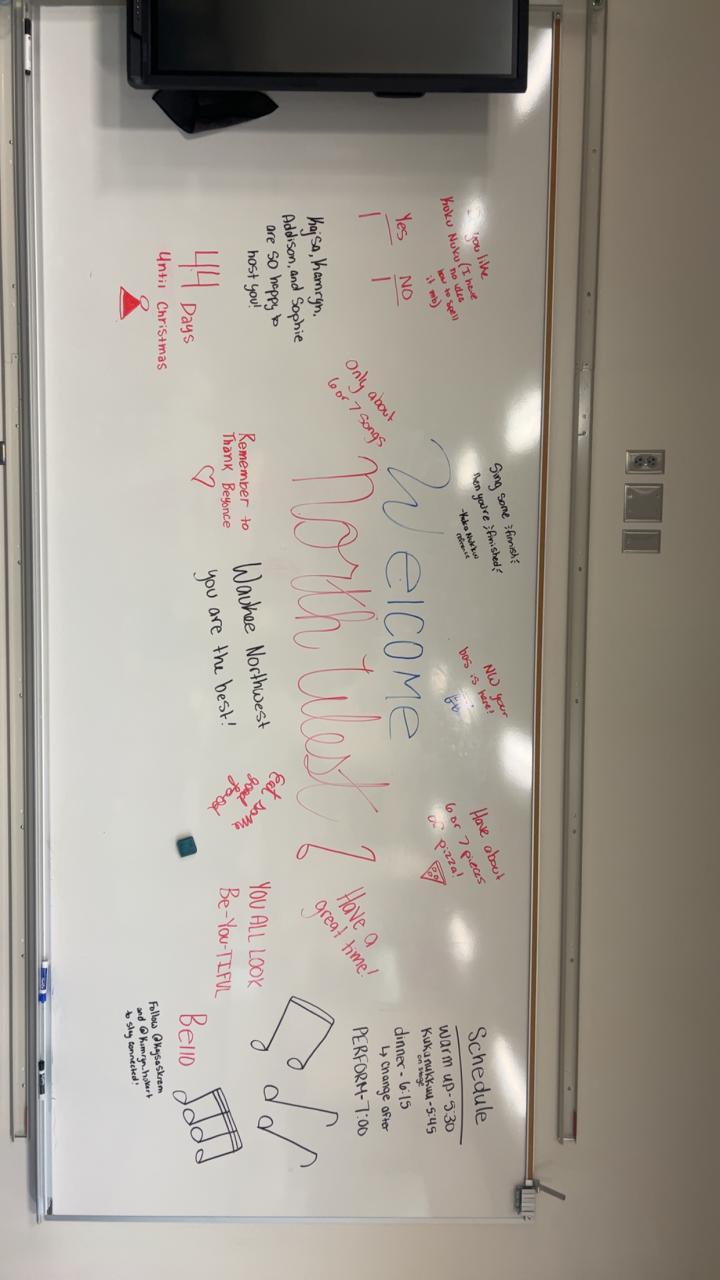 Do you like
Kuku Nuku (I have
no idea
how to spell
it mb)
Yes
NO
Kajsa, Kamryn,
Addison, and Sophie
are so happy to
host you!
44 Days
Until Christmas
Only about
6 or 7 songs
Sing some finish
then you're finished
Welcome
North West
Remember to
Thank Beyonce
Waukee Northwest
you are the best!
NW your
bas is here!
Have about
6 or 7 pieces
of pizza!
Eat some
good
food
Have a
great time!
YOU ALL LOOK
Be-You-TIFUL
Schedule
warm up-5:30
Kukunukkuu-5:45
on stage
dinner-6:15
↳ change after
PERFORM-7:00
Bello
Follow @kajsaskrem
and @kamryn.hobart
to stay connected!